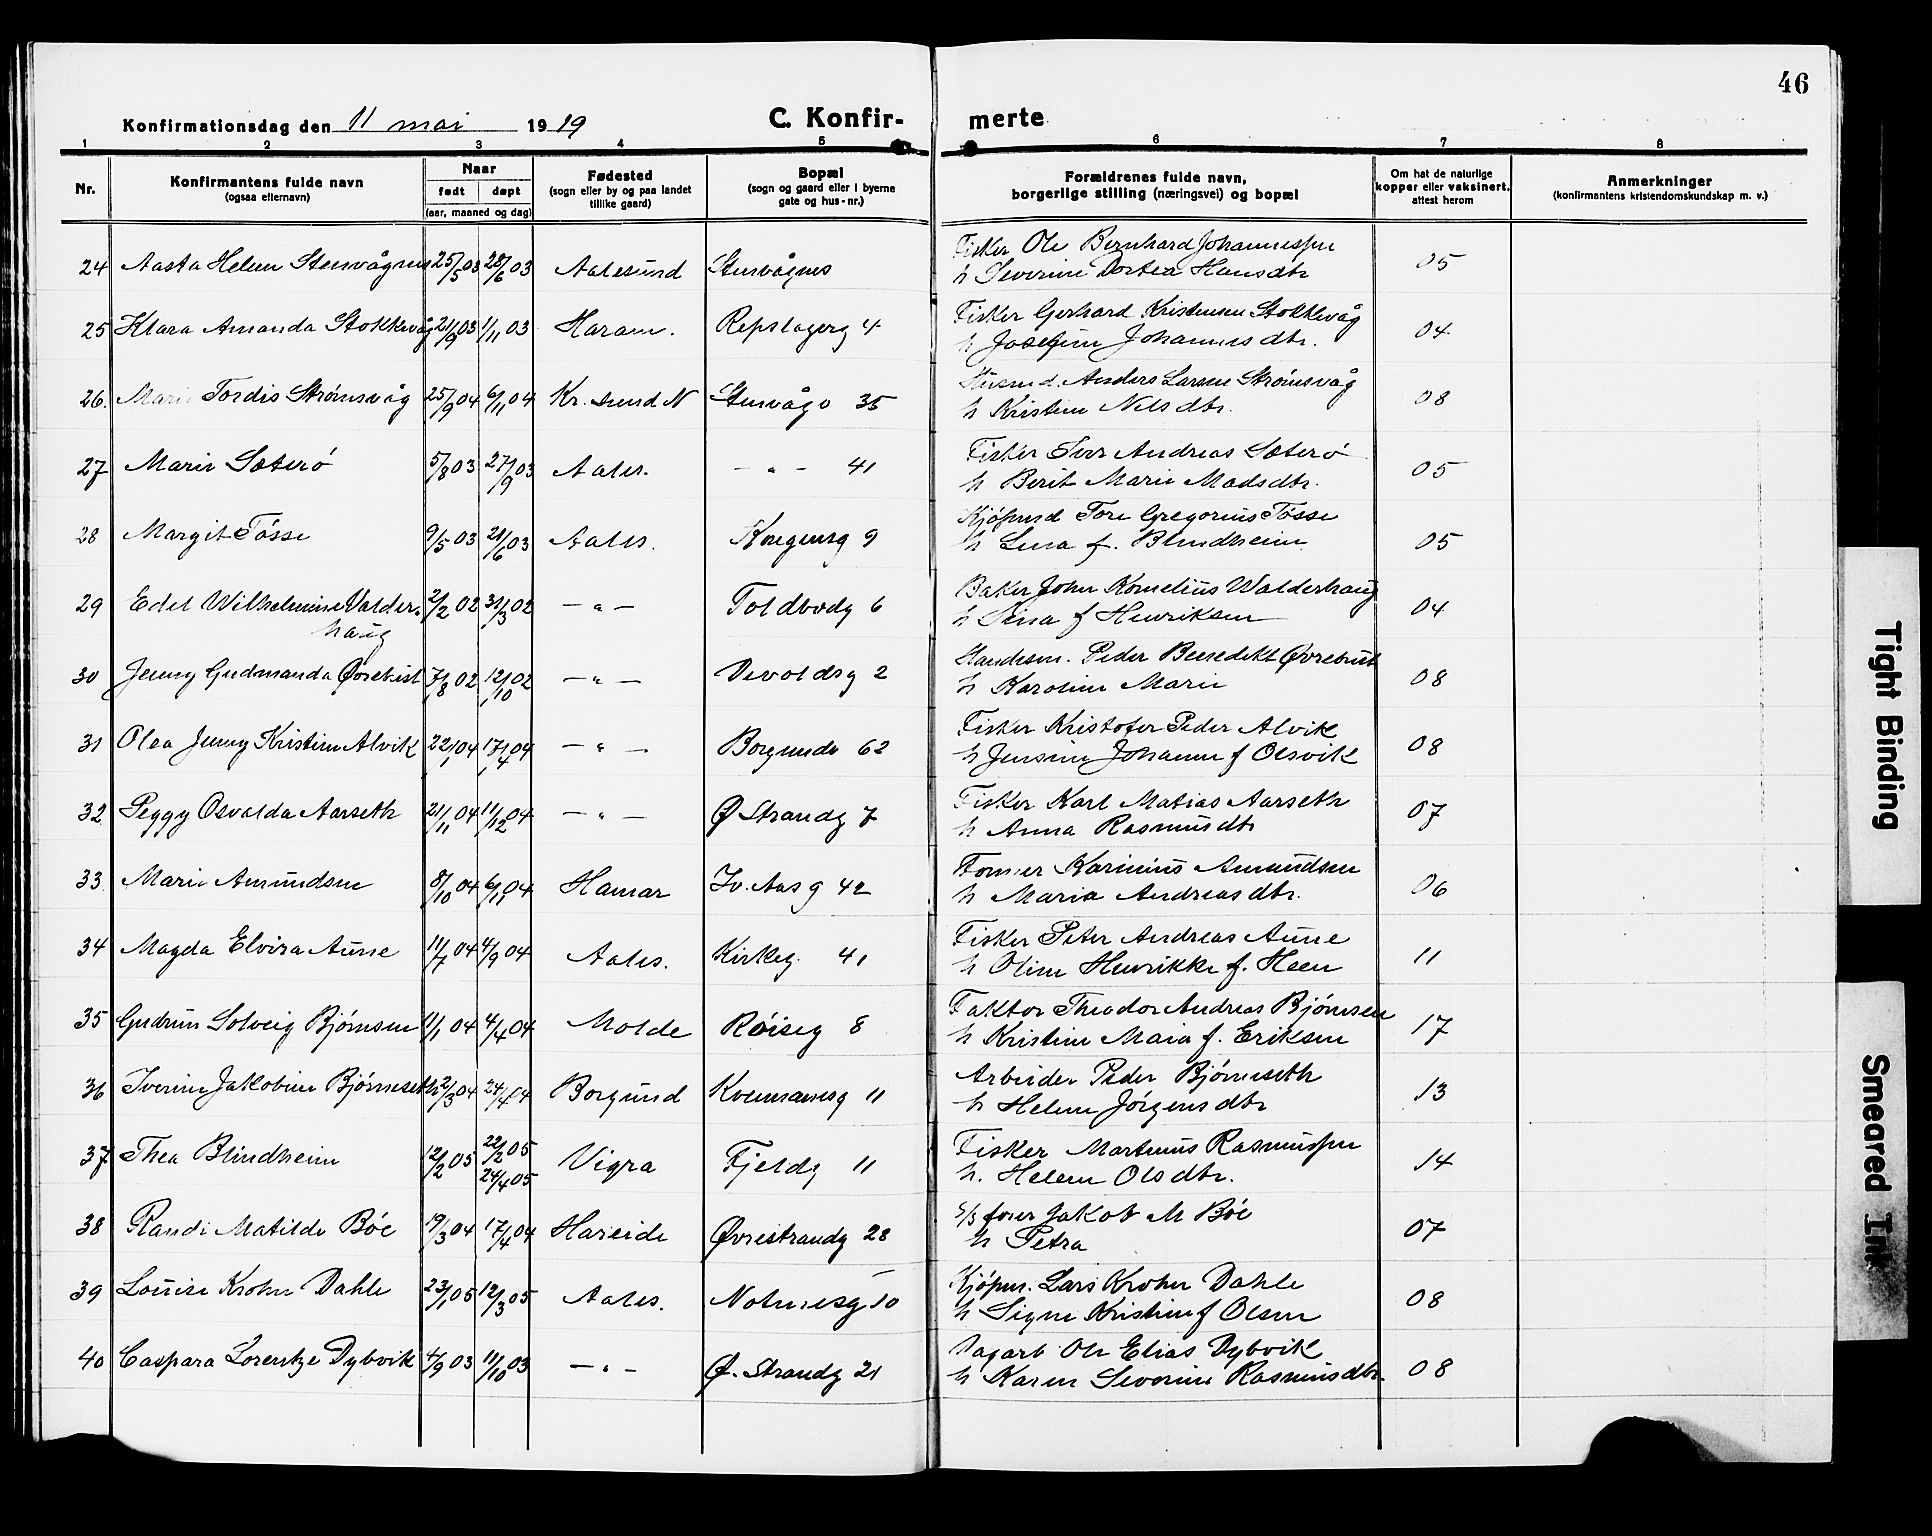 46
Konfirmationsdag den 11 mai 1919 C. Konfir- merte
1 2 3 4 5 6 7 8
Nr. Konfirmantens fulde navn (ogsaa efternavn) Naar født døpt (aar, maaned og dag) Fødested (sogn eller by og paa landet tillike gaard) Bopæl (sogn og gaard eller i byerne gate og hus-nr.) Forældrenes fulde navn, borgerlige stilling (næringsvei) og bopæl Om hat de naturlige kopper eller vaksinert, attest herom Anmerkninger (konfirmantens kristendomskundskap m. v.)
24 Aasta Helene Stensvågnes 25/5 03 28/6 03 Aalesund Stensvågnes Fisker Ole Bernhard Johannessen 05
h Severine Dortea Hansdtr
25 Klara Amanda Stokkevåg 21/9 03 1/11 03 Haram. Repslagerg 4 Fisker Gerhard Kristensen Stokkevåg 04
h Josefine Johannesdtr.
26. Marie Tordis Strømsvåg 25/9 04 6/11 04 Kr.sund N Stensvåg 35 Husmd. Anders Larsen Strømsvåg 08
h Kristine Nilsdtr.
27 Marie Sæterø 5/8 03 27/9 03 Aales. - " - 41 Fisker Iver Andreas Sæterø 05
h Berit Marie Madsdtr.
28 Margit Tøsse 9/5 03 21/6 03 Aales. Kongensg 9 Kjøpmd Tore Gregorius Tøsse 05
h Lina f. Blindheim
29 Edel Wilhelmine Valder- 2/2 02 31/3 02 - " - Toldbodg 6 Baker John Kornelius Walderhaug 04
haug h Sina f Henriksen
30 Jenny Gudmanda Øvrebust 7/8 02 12/10 02 - " - Devoldsg 2 Handelsm. Peder Benedikt Øvrebust 08
h Karoline Marie
31 Olea Jenny Kristine Alvik 22/1 04 17/4 04 - " - Borgundv 62 Fisker Kristofer Peder Alvik 08
h Jensine Johanne f Olsvik
32 Peggy Osvalda Aarseth 21/11 04 11/12 04 - " - Ø Strandg 7 Fisker Karl Matias Aarseth 07
h Anna Rasmusdtr
33. Marie Amundsen 8/10 04 6/11 04 Hamar Iv. Aasg 42 Former Karinius Amundsen 06
h Maria Andreasdtr.
34 Magda Elvira Aune 11/7 04 4/9 04 Aales. Kirkeg. 41 Fisker Peter Andreas Aune 11
h Oline Henrikke f. Heen
35 Gudrun Solveig Bjørnsen 11/1 04 4/4 04 Molde Røiseg 8 Faktor Theodor Andreas Bjørnsen 17
h Kristine Maia f. Eriksen
36 Iverine Jakobine Bjørneseth 2/3 04 24/4 04 Borgund Kvennanesg 11 Arbeider Peder Bjørneseth 13
h Helene Jørgensdtr
37 Thea Blindheim 12/2 05 22/2 05 24/4 05 Vigra Fjeldg 11 Fisker Martinus Rasmussen 14
h. Helene Olsdtr.
38 Randi Matilde Bøe 19/3 04 17/4 04 Hareide Øvrestrandg 28 s/s fører Jakob M Bøe 07
h Petra
39 Louise Krohn Dahle 23/1 05 12/3 05 Aales. Notenesg 10 Kjøpm. Lars Krohn Dahle 08
h Signe Kristine f Olsen
40 Caspara Lorentze Dybvik 4/9 03 11/10 03 - " - Ø. Strandg 21 Dagarb Ole Elias Dybvik 08
h Karen Severine Rasmusdtr.
Tight Binding
Smeared Ink